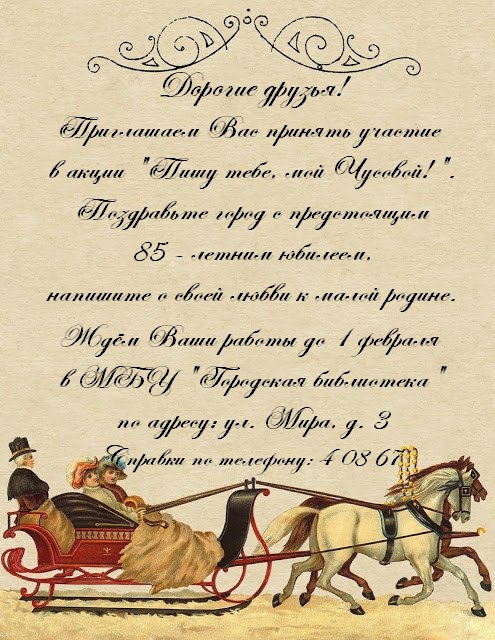 Дорогие друзья!
Приглашаем Вас принять участие
в акции "Пишу тебе, мой Чусовой! ".
Поздравьте город с предстоящим
85 - летним юбилеем,
напишите о своей любви к малой родине.
Ждём Ваши работы до 1 февраля
в МБУ "Городская библиотека "
по адресу: ул. Мира, д. 3
Справки по телефону: 4 08 67